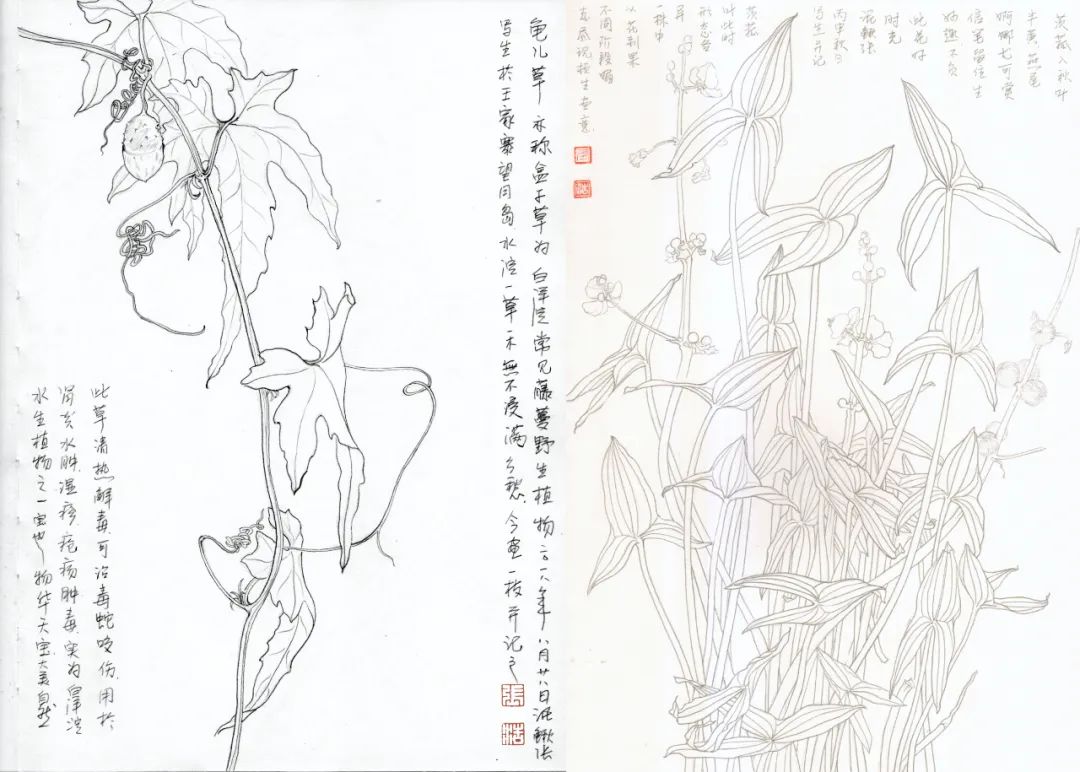 龟儿草 亦称盒子草为白洋淀常见藤蔓野生植物 二〇一八年八月廿八日泥鳅张
写生於王家寨望月岛水淀一草一木無不浸满乡愁,今画一枝并记之
張
此草清热解毒,可治毒蛇咬伤,用於
肾炎水肿,湿疹疮疡肿毒,实为白洋淀
水生植物之一宝也 物华天宝大美自然
茨菰入秋叶
半黄燕尾
婀娜尤可赏
信笔留住生
妙趣不负
此花好
时光
泥鳅张
丙申秋日
写生并记
茨菰
此时
形态各
异
一株中
从花到果
不同阶段